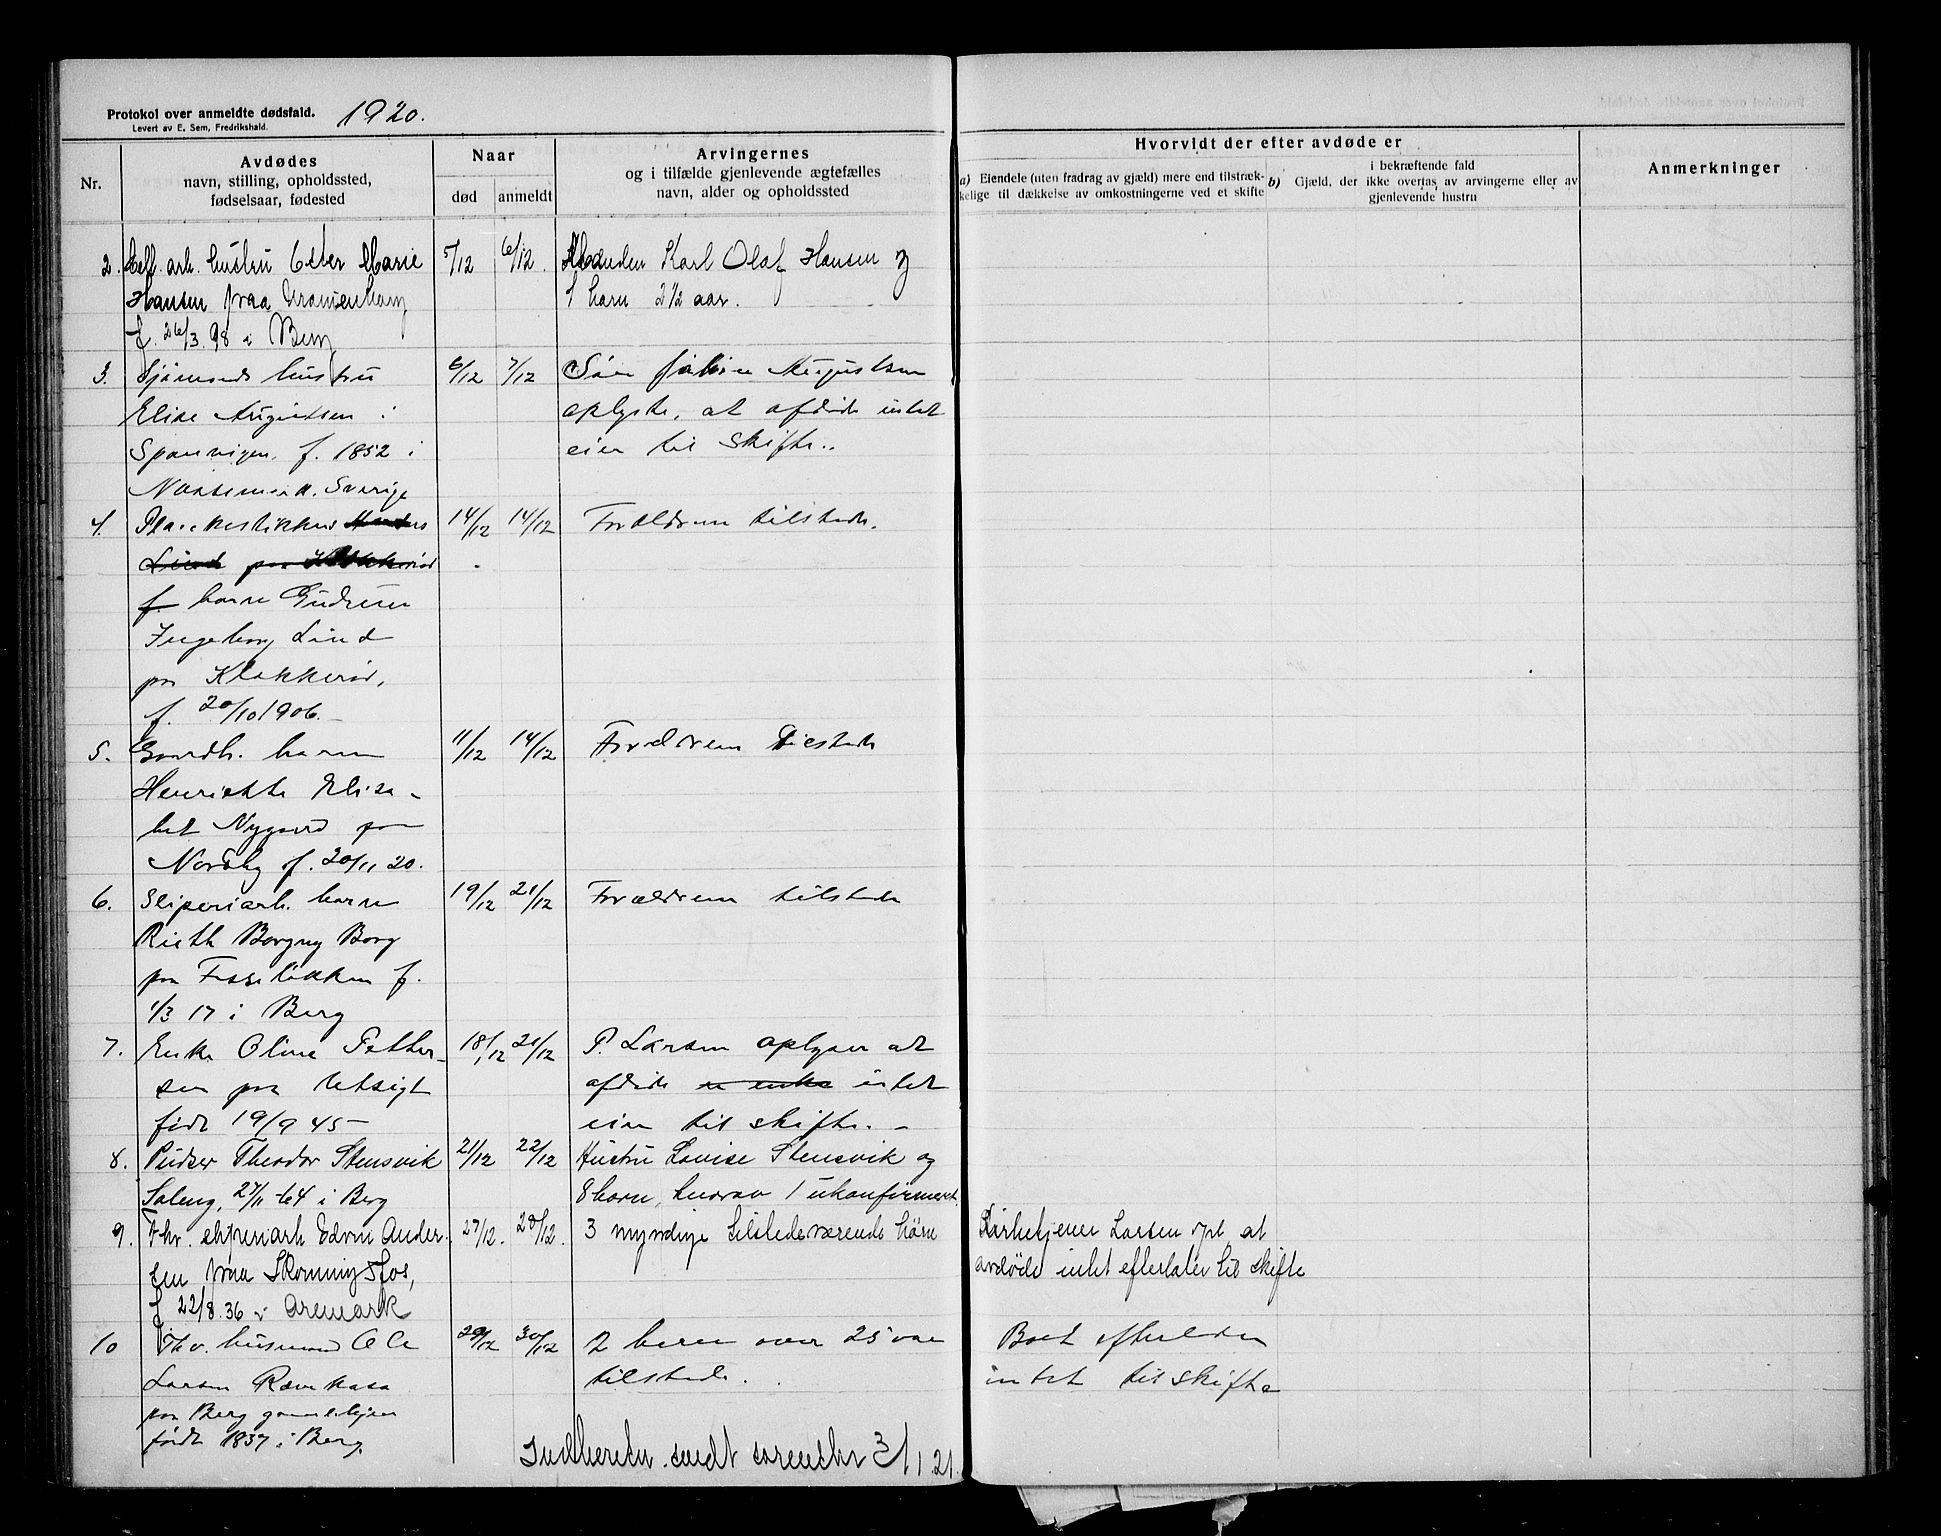 Protokol over anmeldte dødsfald. 1920.
Levert av E. Sem, Fredrikshald.
Nr.
Avdødes
navn, stilling, opholdssted,
fødselsaar, fødested
Naar
død
anmeldt
Arvingernes
og i tilfælde gjenlevende ægtefælles
navn, alder og opholdssted
Hvorvidt der efter avdøde er
a) Eiendele (uten fradrag av gjæld) mere end tilstræk-
kelige til dækkelse av omkostningerne ved et skifte
b) Gjæld, der i bekræftende fald ikke overtas av arvingerne eller av
gjenlevende hustru
Anmerkninger
2. arb. hustru Ester Marie
Hansen paa
f. 26/3. 98 i Berg
5/12 6/12.
Manden Karl Olaf Hansen og
1 barn 2 1/2 aar.
3. Sjømands hustru
Elise Augustsen i
Sponvigen. f. 1852 i
Sverige
6/12 7/12
Augustsen
oplyste, at afdøde intet
eier til skifte.
4. Anders
Lind paa Klokkerød
f. barn Gudrun
Ingeborg Lind
paa Klokkerød,
f. 20/10 1906.
14/12 14/12
Forældrene tilstede.
5. Gaardb. barn
Henriette Elisa-
bet Nygaard paa
Nordby f. 20/11 20.
11/12 14/12
Forældrene tilstede
6. Sliperiarb. barn
Ruth Borgny Borg
paa Fisseløkken f.
1/3 17 i Berg
19/12 21/12
Forældrene tilstede
7. Enke Oline Petter-
sen paa Utsigt
født 19/9 45 –
18/12 21/12
P. Larsen oplyser at
afdøde er enke intet
eier til skifte. –
8. Pudser Theodor Stensvik
Saleng, 27/11 64 i Berg
21/12 22/12
Hustru Lovise Stensvik og
8 barn, hvorav 1 ukonfirmert
9. Fhv. sliperiarb Edvin Ander-
sen paa Skonningsfos,
f 22/8. 36 i Aremark
27/12. 28/12.
3 myndige tilstedeværende børn
Kirketjener Larsen opl. at
avdøde intet efterlater til skifte
10 Fhv. husmand Ole
Larsen Rævekasa
paa Berg gamlehjem
født 1837 i Berg.
29/12 30/12
2 barn over 25 aar
tilstede.
Boet efterlader
intet til skifte
Indberetn. sendt sorenskr 3/1 21.